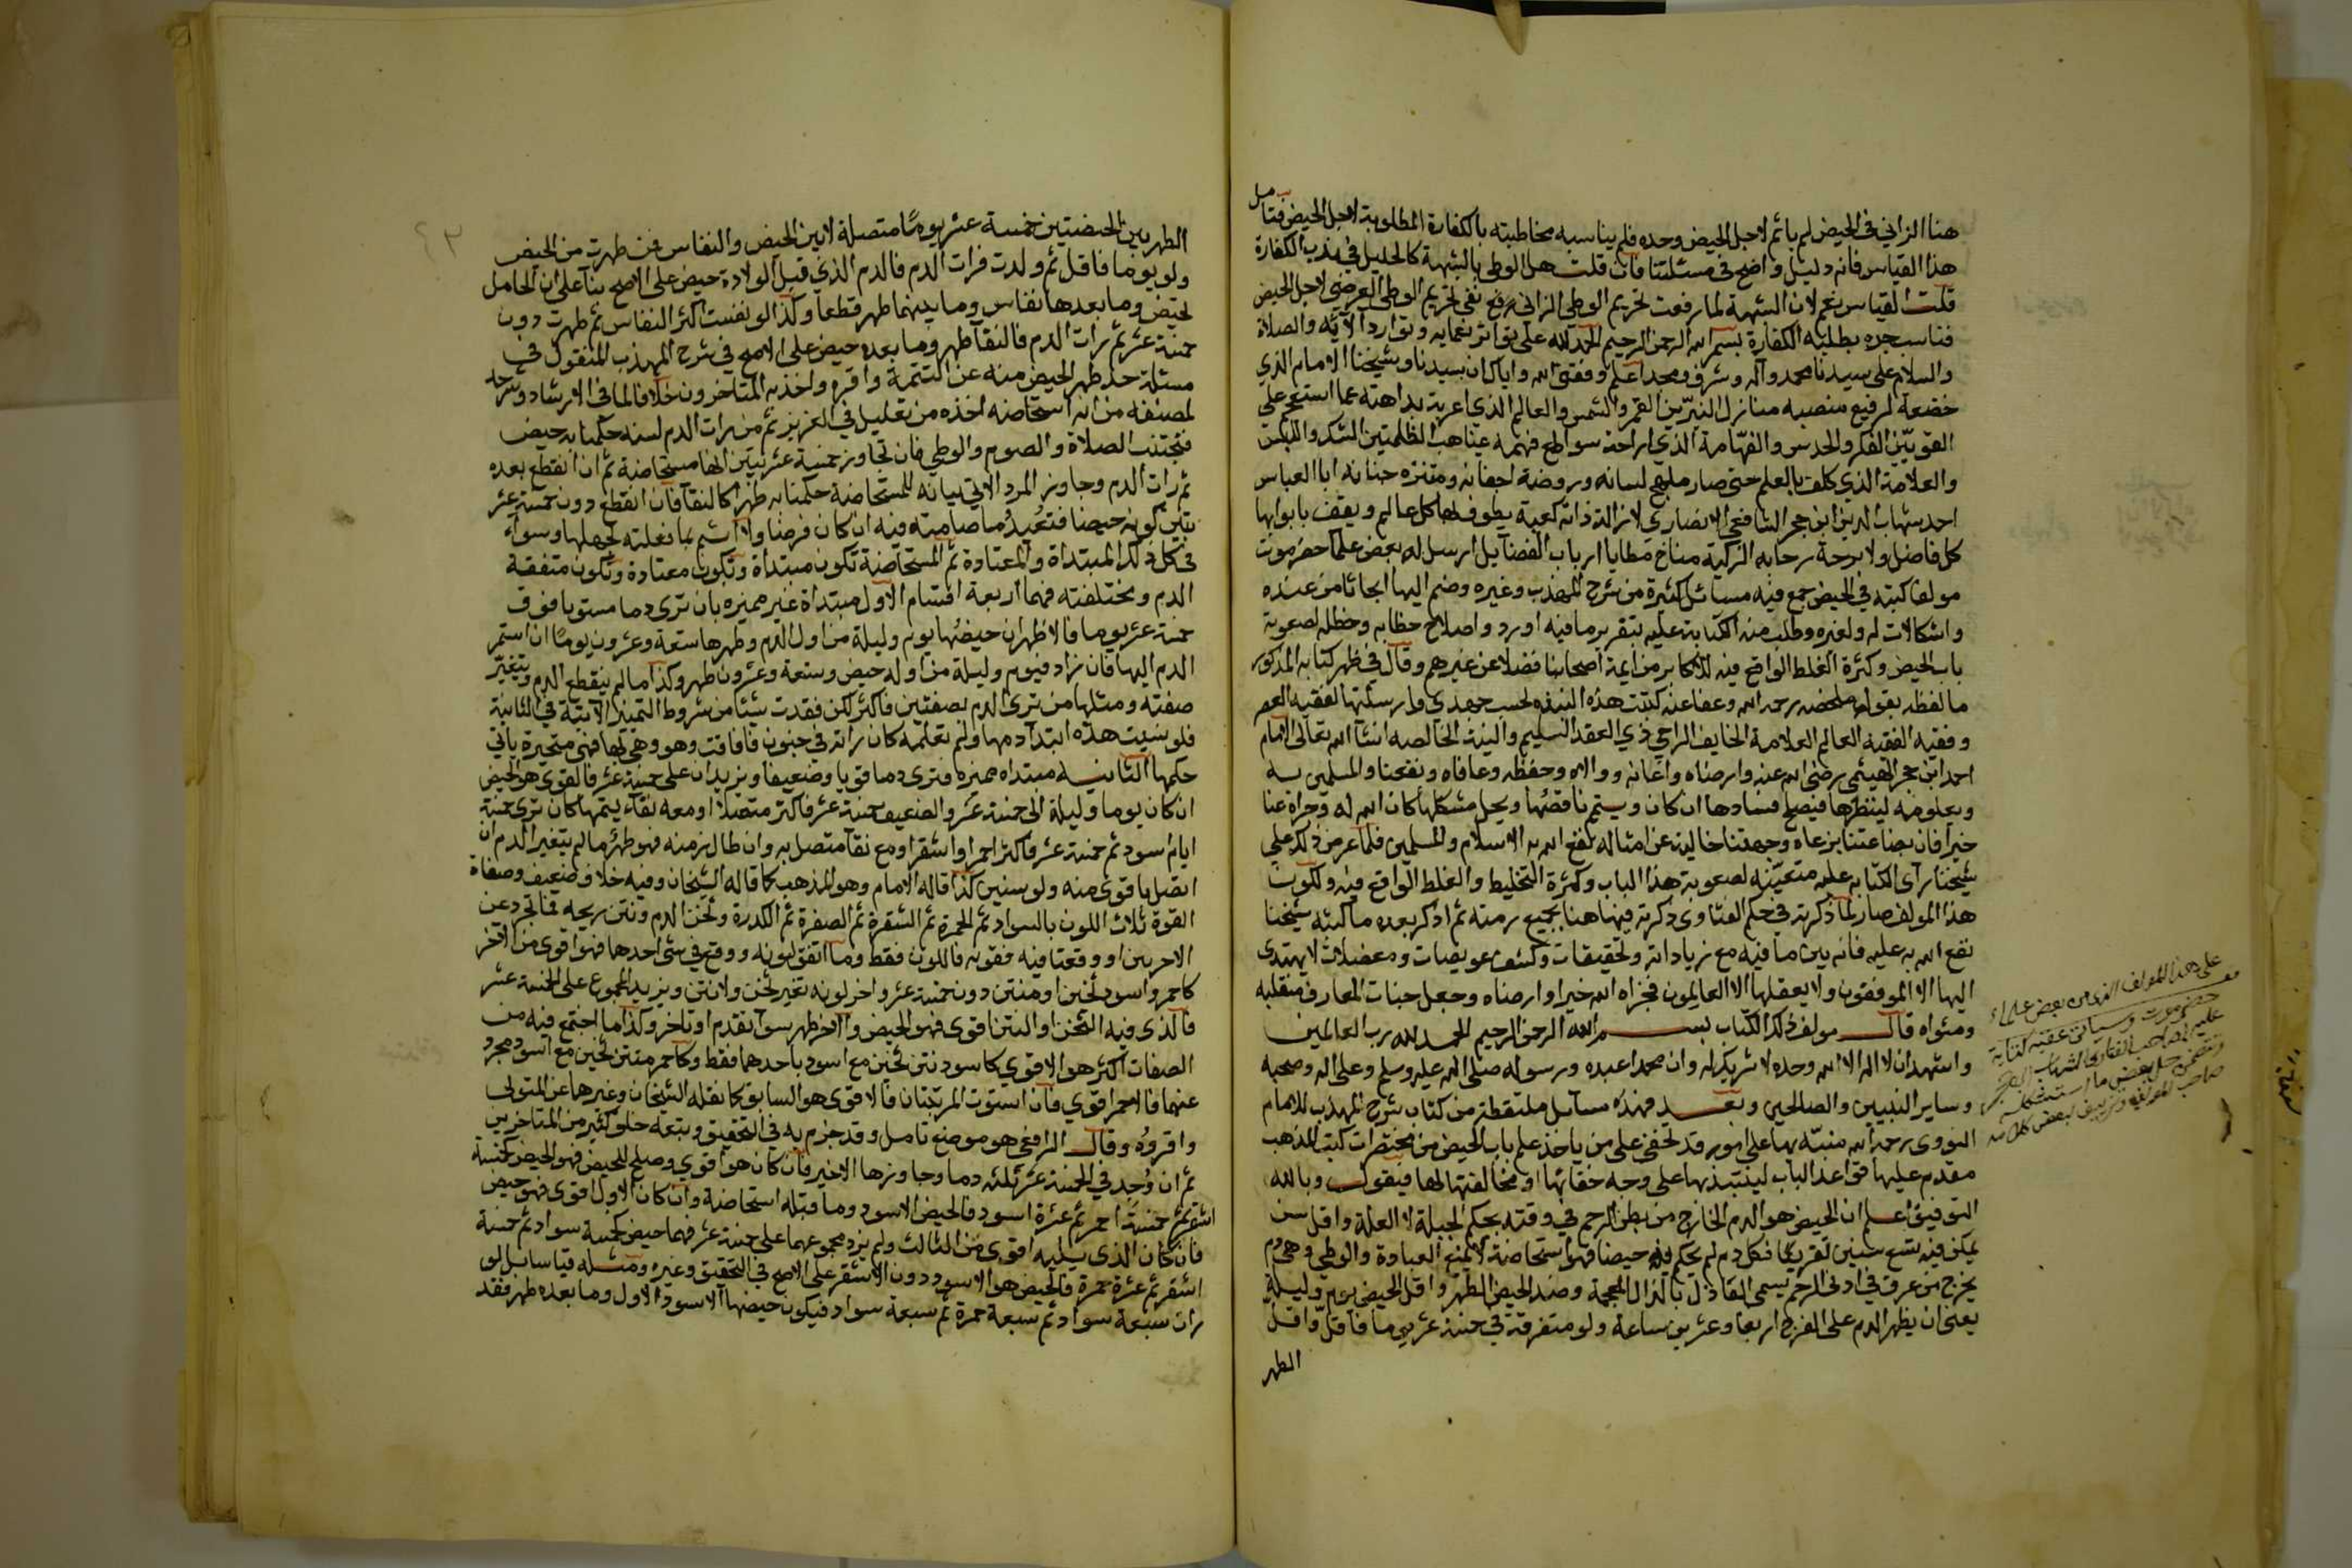 هنا الزاني في الحيض لم ياثم لاجل الحيض وحده فلم يناسبه مخاطبته بالكفارة المطلوبة لاجل الحيض فتامل
هذا القياس فانه دليل واضح في مسئلتنا فان قلت هل الوطي بالشبهة كالحليل في ندب الكفارة
قلت القياس نعم لان الشبهة لما رفعت تحريم الوطي الزاني بقي تحريم الوطي العرضي لاجل الحيض
فناسب بطلبه الكفارة بسم الله الرحمن الرحيم الحمد لله على تواتر نعمايه وتوارد الآيه والصلاة
والسلام على سيدنا محمد وآله وشرف ومجد اعلم وفقني الله واياك ان سيدنا وشيخنا الامام الذي
خضعة لرفيع منصبه منازل النيرين القمر والشمس والعالم الذي اعربت بداهته عما استعجم على
القويين الفكر والحدس والفهامة الذي ازاحت سواطع فهمه غياهب الظلمتين الشك واللبس
والعلامة الذي كلف بالعلم حتى صار ملهج لسانه وروضة اجفانه ومنتزه جنانه ابا العباس
احمد شهاب الدين ابن حجر الشافعي الانصاري لا زالت ذاته كعبة يطوف بها كل عالم ويقف بابوابها
كل فاضل ولا برحة رحابه الزكية مناخ مطايا ارباب الفضآيل ارسل له بعض علما حضرموت
مولفا كتبه في الحيض جمع فيه مسائل كثيرة من شرح المهذب وغيره وضم اليها ابحاثا من عنده
واشكالات له ولغيره وطلب منه الكتابة عليه بتقرير ما فيه اورد واصلاح خطابه وخطله لصعوبة
باب الحيض وكثرة الغلط الواقع فيه للاكابر من ايمة اصحابنا فضلا عن غيرهم وقال في ظهر كتابه المذكور
ما لفظه يقول ملخصه رحمه الله وعفا عنه كتبت هذه النبذه بحسب جهدي وارسلتها لفقيه العصر
وفقيه الفقيه العالم العلامة الخايف الراجي ذي العقد السليم والنية الخالصه انشآ الله تعالى الامام
احمد ابن حجر الهيثمي رضى الله عنه وارضاه واعانه ووالاه وحفظه وعافاه ونفعنا والمسلمين به
وبعلومه لينظرها فيصلح فسادها ان كان ويتم ناقصها ويحل مشكلها كان الله له وجزاه عنا
خيرا فان بضاعتنا مزجاة وجهتنا خالية عن امثاله نفع الله به الاسلام والمسلمين فلما عرض ذلك على
شيخنا رآى الكتابه عليه متعينه لصعوبة هذا الباب وكثرة التخليط والغلط الواقع فيه ولكون
هذا المولف صار لما ذكرته في حكم الفتاوى ذكرته فيها هنا بجميع رمته ثم اذكر بعده ما كتبه شيخنا
نفع الله به عليه فانه بين ما فيه مع زيادات وتحقيقات وكشف عويصات ومعضلات لا يهتدى
اليها الا الموفقون ولا يعقلها الا العالمون فجزاه الله خيرا وارضاه وجعل جنات المعارف متقلبه
ومثواه قال مولف ذلك الكتاب بسم الله الرحمن الرحيم الحمد لله رب العالمين
واشهد ان لا اله الا الله وحده لا شريك له وان محمدا عبده ورسوله صلى الله عليه وسلم وعلى اله وصحبه
وساير النبيين والصالحين وبعد فهذه مسآيل ملتقطة من كتاب شرح المهذب للامام
النووى رحمه الله منبّه بها على امور قد تخفى على من ياخذ علم باب الحيض من مختصرات كتب المذهب
مقدم عليها قواعد الباب لينتبه بها على وجه خفائها او مخالفتها لها فيقول وبالله
التوفيق اعلم ان الحيض هو الدم الخارج من بطن الرحم في وقته بحكم الجبلة لا العلة واقل سن
يمكن فيه تسع سنين تقريبا فكل دم لم يحكم فيه حيضا فهو استحاضة لا يمنع العبادة والوطي وهى دم
يخرج من عرق في ادنى الرحم يسمى العاذل بالذال المعجمة وضد الحيض الطهر واقل الحيض يوم وليلة
يعنى ان يظهر الدم على الفرج اربعا وعشرين ساعة ولو متفرقة في خمسة عشر يوما فاقل واقل
الطهر
على هذا المولف الذى من بعض علماء
حضرموت وسياتى عقبه كتابة
عليه لصاحب الفتاوى الشهاب ابن حجر
وتتضمن حل بعض ما استشكله
صاحب المولف وتزييف لبعض كلامه
الطهر بين الحيضتين خمسة عشر يوما متصلة لا بين الحيض والنفاس فمن طهرت من الحيض
ولو يوما فاقل ثم ولدت فرات الدم فالدم الذي قبل الولادة حيض على الاصح بنآ على ان الحامل
تحيض وما بعدها نفاس وما بينهما طهر قطعا وكذا لو نفست اكثر النفاس ثم طهرت دون
خمسة عشر ثم رات الدم فالنقآ طهر وما بعده حيض على الاصح في شرح المهذب المنقول في
مسئلة حد طهر الحيض منه عن التتمة واقره واخذ به المتاخرون خلافا لما في الارشاد وشرحه
لمصنفه من انه استحاضة اخذه من تعليل في العزيز ثم من رات الدم لسنه حكمنا به حيض
فتجتنب الصلاة والصوم والوطي فان تجاوز خمسة عشر تبين انها مستحاضة ثم ان انقطع بعده
ثم رات الدم وجاوز المرد الاتي بيانه للمستحاضة حكمنا به طهرا كالنقآ فان انقطع دون خمسة عشر
تبين كونه حيضا فتعيد ما صامته فيه ان كان فرضا ولا اثم بما فعلته لجهلها وسوآء
في كل ذلك المبتداة والمعتادة ثم المستحاضة تكون مبتداة وتكون معتادة وتكون متفقة
الدم ومختلفته فهما اربعة اقسام الاول مبتداة غير مميزه بان ترى دما مستويا فوق
خمسة عشر يوما فالاظهر ان حيضها يوم وليلة من اول الدم وطهرها تسعة وعشرون يوما ان استمر
الدم اليها فان زاد فيوم وليلة من اوله حيض وتسعة وعشرون طهر وكذا ما لم ينقطع الدم ويتغير
صفته ومثلها من ترى الدم بصفتين فاكثر لكن فقدت شيئا من شروط التمييز الاتية في الثانية
فلو نسيت هذه ابتدآ دمها ولم تعلمه كان راته في جنون فافاقت وهو وهي بها فهى متحيرة ياتي
حكمها الثانيه مبتداه مميزه فترى دما قويا وضعيفا ويزيدان على خمسة عشر فالقوى هو الحيض
ان كان يوما وليلة الى خمسة عشر والضعيف خمسة عشر فاكثر متصلا او معه نقآء يتمها كان ترى خمسة
ايام سود ثم خمسة عشر فاكثر احمر او اشقر او مع نقآ متصل به وان طال زمنه فهو طهر ما لم يتغير الدم ان
اتصل باقوى منه ولو سنين كذا قاله الامام وهو المذهب كما قاله الشيخان وفيه خلاف ضعيف وصفاة
القوة ثلاث اللون بالسواد ثم الحمرة ثم الشقرة ثم الصفرة ثم الكدرة وثخن الدم ونتن ريحه فما تجرد عن
الاخريين او وقعتا فيه فقوته فاللون فقط وما اتفق لونه ووقع في شى احدهما فهو اقوى من الآخر
كاحمر واسود ثخين او منتن دون خمسة عشر واخر لونه بغير ثخن ولا نتن ويزيد المجموع على الخمسة عشر
فالذى فيه الثخن او النتن اقوى فهو الحيض والاخر طهر سوآ تقدم او تاخر وكذا ما اجتمع فيه من
الصفات اكثر هو الاقوي كاسود نتن ثخين مع اسود باحدهما فقط وكاحمر منتن ثخين مع اسود مجرد
عنهما فالاحمر اقوي فان استوت المرتبتان فالاقوى هو السابق كما نقله الشيخان وغيرها عن المتولى
واقروه وقال الرافعي هو موضع تامل وقد جزم به في التحقيق وتبعه خلق كثير من المتاخرين
ثم ان وجد في الخمسة عشر ثلثه دما وجاوزها الاخير فان كان هو اقوي وصلح للحيض فهو الحيض كخمسة
اشقر ثم خمسة احمر ثم عشرة اسود فالحيض الاسود وما قبله استحاضة وان كان الاول اقوى فهو حيض
فان كان الذى يليه اقوى من الثالث ولم يزد مجموعهما على خمسة عشر فهما حيض كخمسة سواد ثم خمسة
اشقر ثم عشرة حمرة فالحيض هو الاسود دون الاشقر على الاصح في التحقيق وغيره ومثله قياسا بل لو
رات سبعة سواد ثم سبعة حمرة ثم سبعة سواد فيكون حيضها الاسود الاول وما بعده طهر فقد